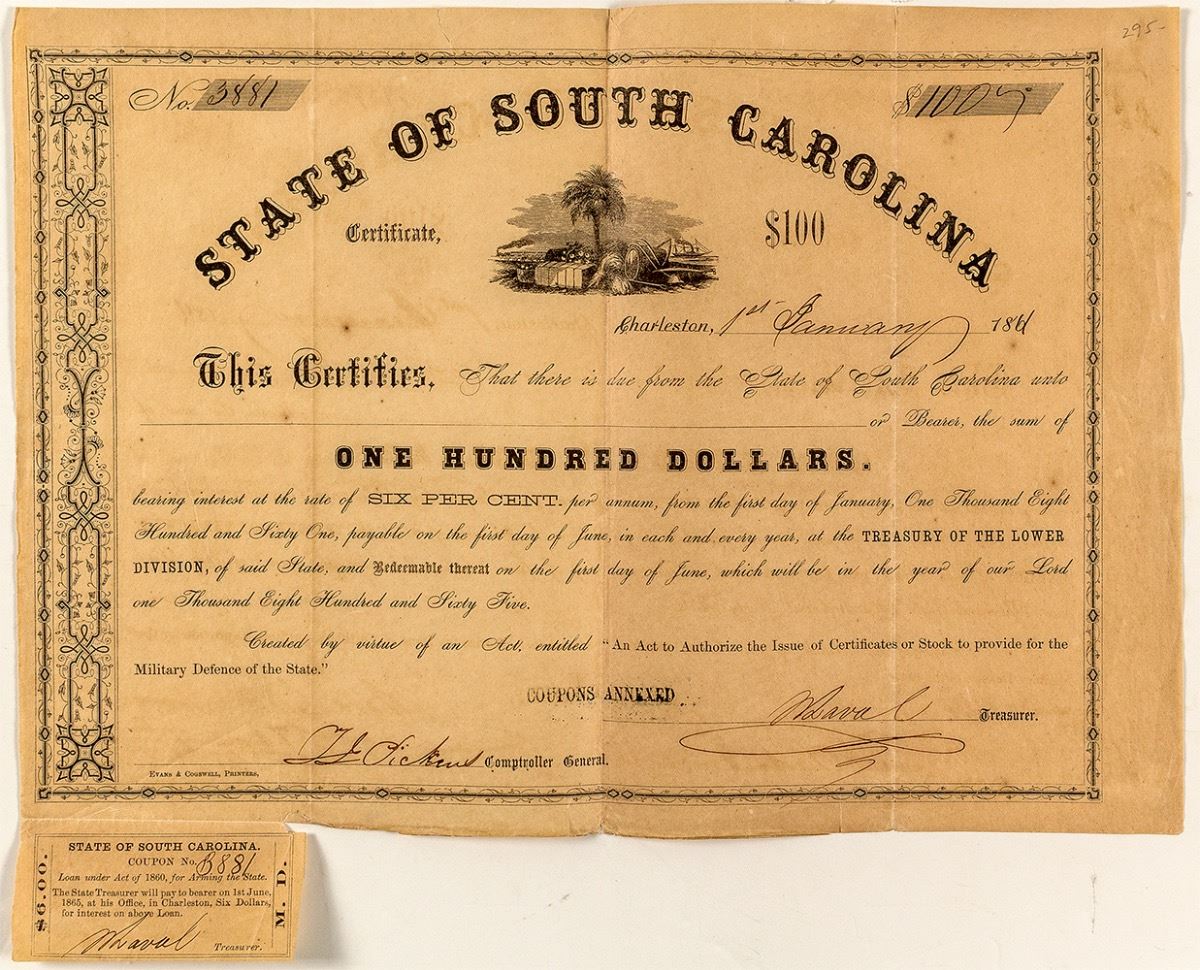 295-
No. 3881
$100
STATE OF SOUTH CAROLINA
Certificate,
$100
Charleston, 1st January 1861
This Certifies, That there is due from the State of South Carolina unto
or Bearer, the sum of
ONE HUNDRED DOLLARS.
bearing interest at the rate of SIX PER CENT. per annum, from the first day of January, One Thousand Eight
Hundred and Sixty One, payable on the first day of June, in each and every year, at the TREASURY OF THE LOWER
DIVISION, of said State, and Redeemable thereat on the first day of June, which will be in the year of our Lord
one Thousand Eight Hundred and Sixty Five.
Created by virtue of an Act, entitled "An Act to Authorize the Issue of Certificates or Stock to provide for the
Military Defence of the State."
COUPONS ANNEXED
W Laval Treasurer.
T J Pickens Comptroller General.
EVANS & COGSWELL, PRINTERS,
STATE OF SOUTH CAROLINA.
COUPON No. 3881
Loan under Act of 1860, for Arming the State.
The State Treasurer will pay to bearer on 1st June,
1865, at his Office, in Charleston, Six Dollars,
for interest on above Loan.
W Laval Treasurer.
$6.00.
M. D.